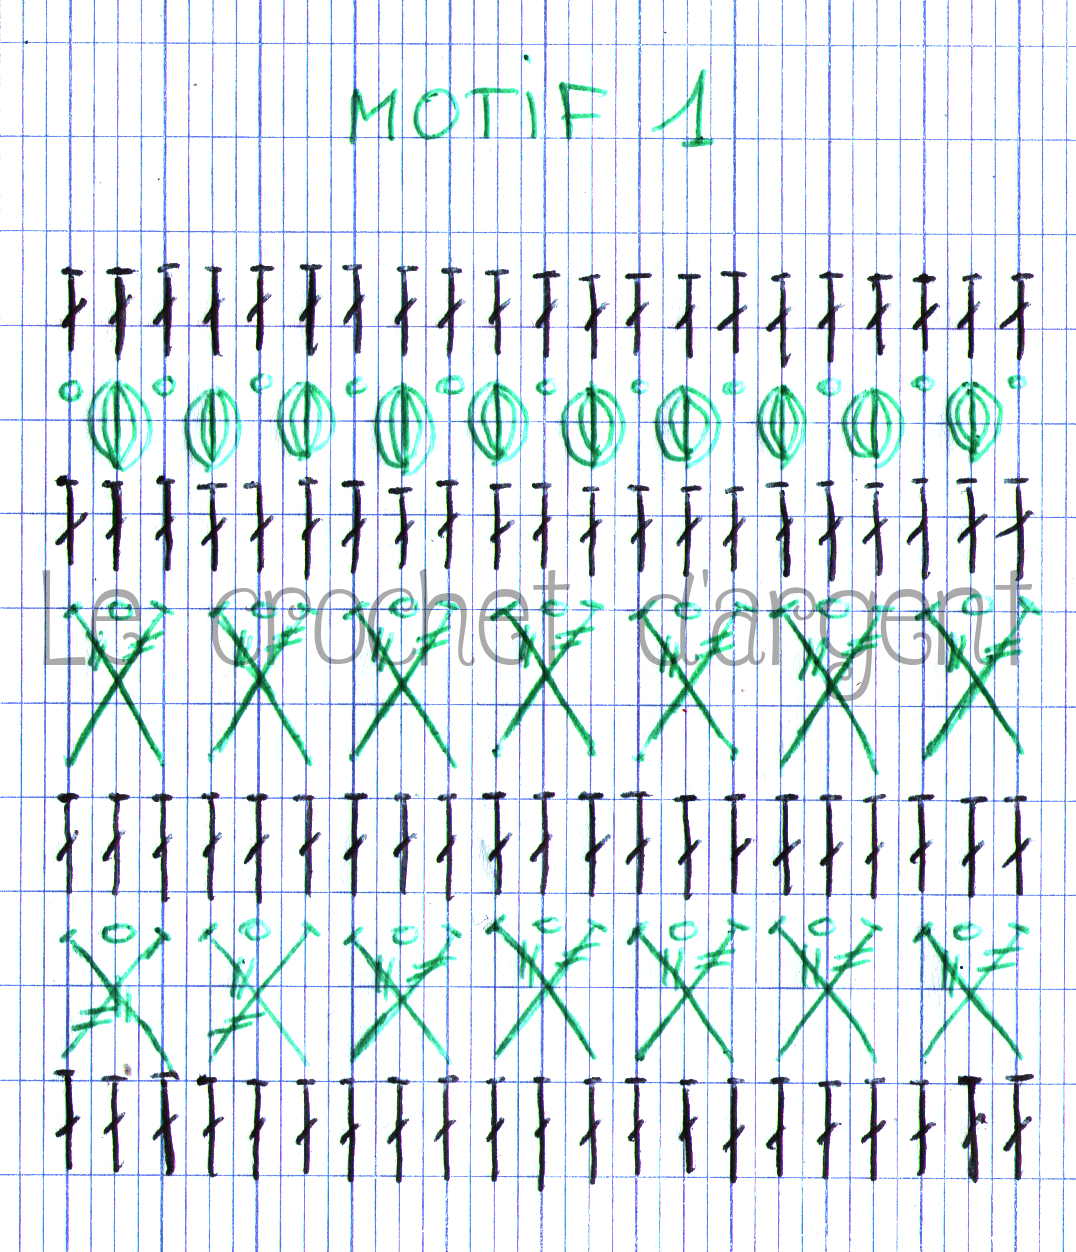 MOTIF 1
Le crochet d'argent